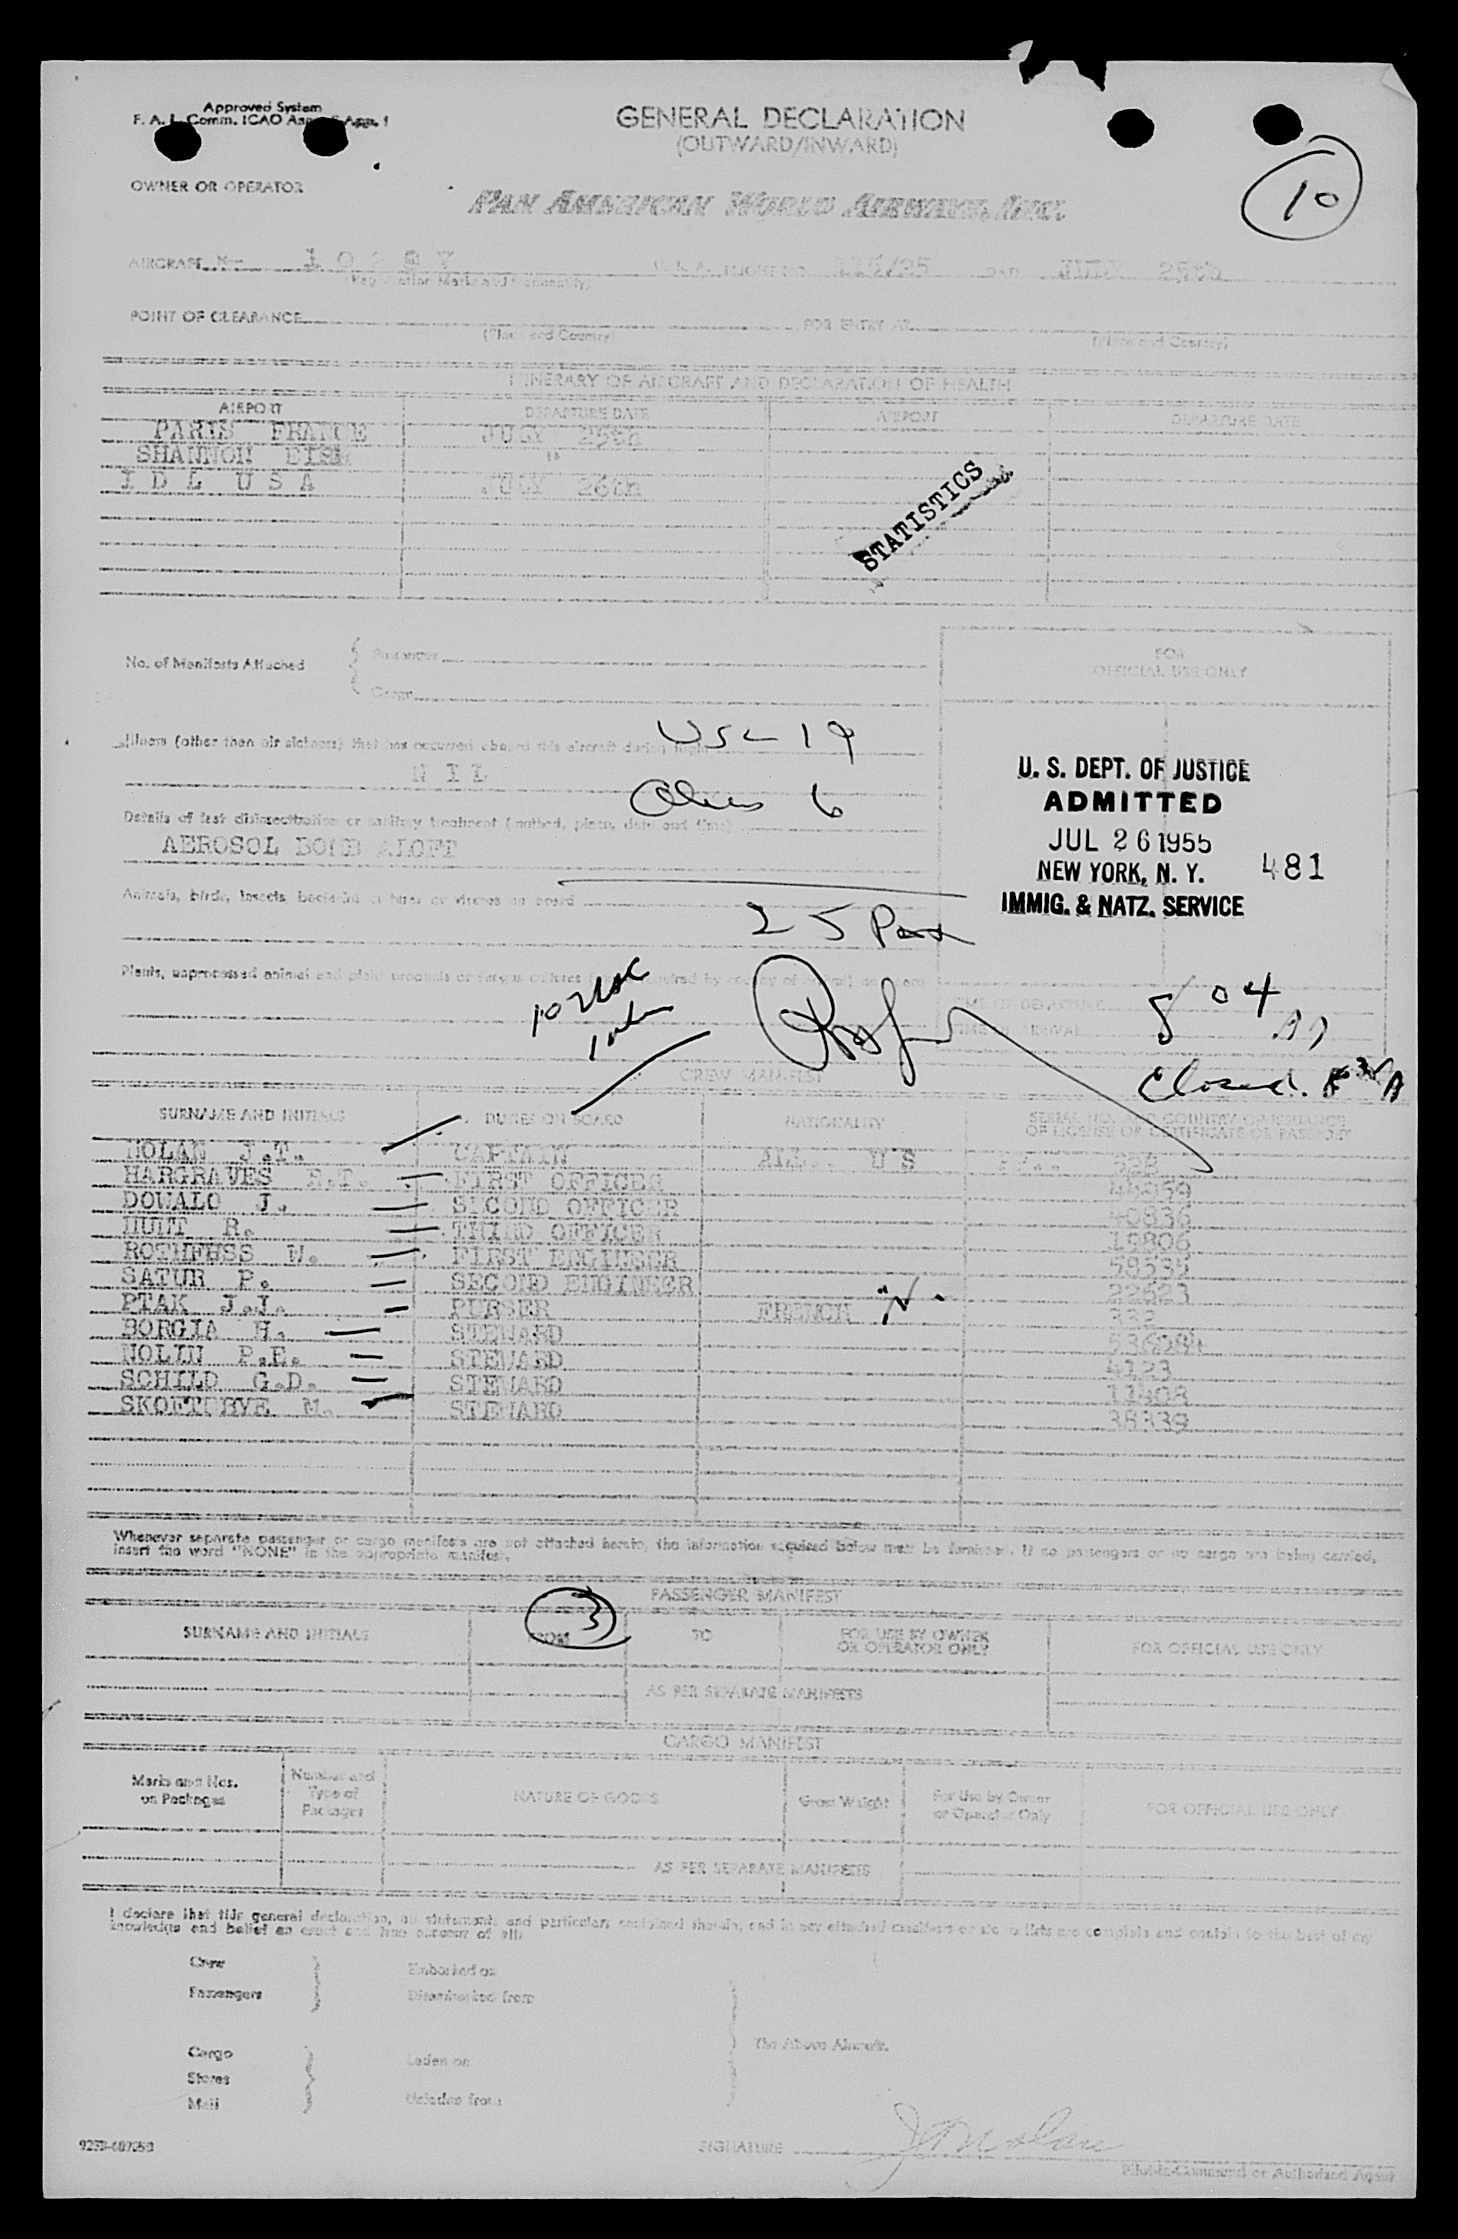 Approved System
F. A. L. Comm. ICAO App. 1
GENERAL DECLARATION
(OUTWARD/INWARD)
10
OWNER OR OPERATOR
PAN AMERICAN WORLD AIRWAYS, INC.
AIRCRAFT N-
FLIGHT NO. 115/25 JULY 25th
(Registration Marks and Nationality)
POINT OF CLEARANCE FOR ENTRY AT
(Place and Country) (Place and Country)
ITINERARY OF AIRCRAFT AND DECLARATION OF HEALTH
AIRPORT DEPARTURE DATE AIRPORT DEPARTURE DATE
PARIS FRANCE JULY 25th
SHANNON EIRE "
I D L U S A JULY 26th
STATISTICS
No. of Manifests Attached { Passenger
{ Cargo
FOR
OFFICIAL USE ONLY
Illness (other than air sickness) that has occurred aboard this aircraft during flight
USC 19
N I L
Aliens 6
Details of last disinsectization or sanitary treatment (method, place, date and time)
AEROSOL BOMB ALOFT
U. S. DEPT. OF JUSTICE
ADMITTED
JUL 26 1955
NEW YORK, N. Y. 481
IMMIG. & NATZ. SERVICE
Animals, birds, insects, bacterial cultures or viruses on board
25 Pax
Plants, unprocessed animal and plant products
10 USC
TIME OF DEPARTURE
TIME OF ARRIVAL
8 04
Closed
CREW MANIFEST
SURNAME AND INITIALS DUTIES ON BOARD NATIONALITY SERIAL NO. AND COUNTRY OF ISSUANCE
OF LICENSE OR CERTIFICATE OR PASSPORT
NOLAN J.T. CAPTAIN ALL U S
HARGRAVES R.T. FIRST OFFICER
DOUALO J. SECOND OFFICER 40836
HUTT R. THIRD OFFICER 19806
ROTHFHSS W. FIRST ENGINEER
SATUR P. SECOND ENGINEER 22623
PTAK J.J. PURSER FRENCH 332
BORGIA H. STEWARD
NOLIN P.E. STEWARD 4123
SCHILD G.D. STEWARD 11808
M. STEWARD 38339
Whenever separate passenger or cargo manifests are not attached hereto, the information required below must be furnished. If no passengers or no cargo are being carried,
insert the word "NONE" in the appropriate manifest.
PASSENGER MANIFEST
3
SURNAME AND INITIALS FROM TO FOR USE BY OWNER
OR OPERATOR ONLY FOR OFFICIAL USE ONLY
AS PER SEPARATE MANIFESTS
CARGO MANIFEST
Marks and Nos.
on Packages Number and
Type of
Packages NATURE OF GOODS Gross Weight For Use by Owner
or Operator Only FOR OFFICIAL USE ONLY
AS PER SEPARATE MANIFESTS
I declare that this general declaration, all statements and particulars contained therein, and in any attached manifests or crew lists are complete and contain to the best of my
knowledge and belief an exact and true account of all:
Crew Embarked on
Passengers Disembarked from
The Above Aircraft.
Cargo Laden on
Stores
Mail Unladen from
SIGNATURE J T Nolan
Pilot-in-Command or Authorized Agent